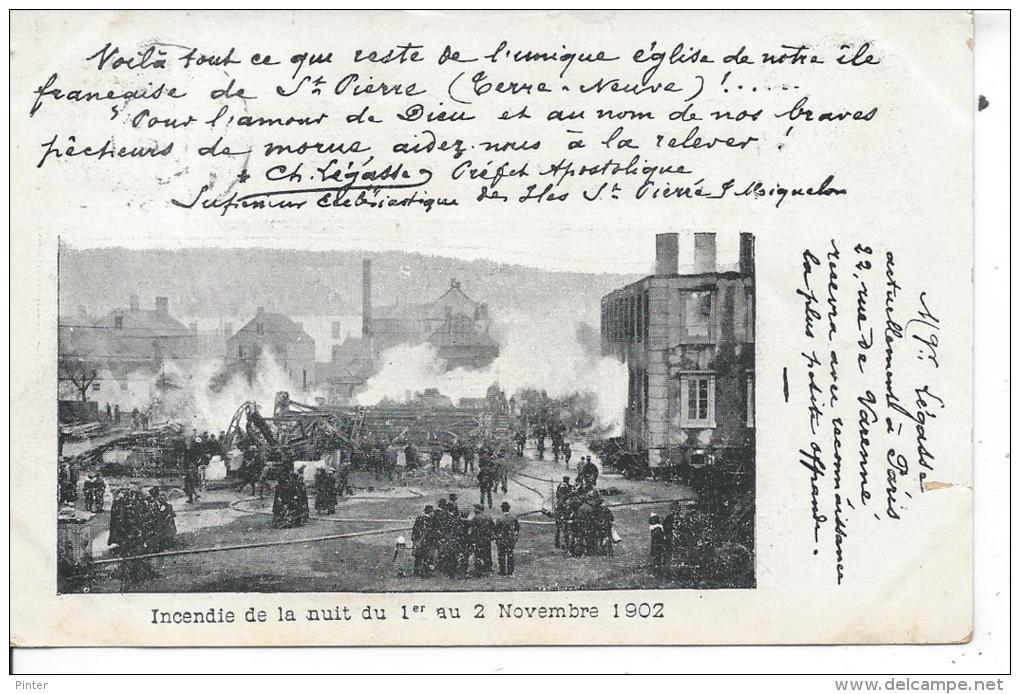 Voilà tout ce qui reste de l'unique église de notre île
française de St Pierre (Terre-Neuve) !......
Pour l'amour de Dieu et au nom de nos braves
pêcheurs de morue aidez-nous à la relever !
Ch. Légasse Préfet Apostolique
Supérieur Ecclésiastique des Iles St Pierre & Miquelon
Mgr Légasse
actuellement à Paris
22, rue de Varenne
recevra avec reconnaissance
la plus petite offrande.
Incendie de la nuit du 1er au 2 Novembre 1902
Pinter
www.delcampe.net